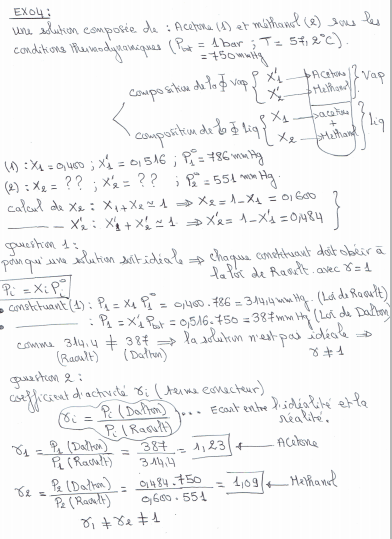 EXO4:
Une solution composée de : Acetone (1) et méthanol (2) sous les
conditions thermodynamiques (Ptot = 1 bar ; T = 57,2°C).
= 750 mmHg
composition de la Φ vap { X'1 → Acetone } Vap
X'2 → Methanol
composition de la Φ liq { X1 → acetone } liq
+
X2 → Methanol
(1) : X1 = 0,400 ; X'1 = 0,516 ; P1° = 786 mmHg
(2) : X2 = ?? ; X'2 = ?? ; P2° = 551 mmHg.
calcul de X2 : X1 + X2 ≃ 1 ⇒ X2 = 1 - X1 = 0,600
——— X'2 : X'1 + X'2 ≃ 1 ⇒ X'2 = 1 - X'1 = 0,484
question 1 :
pour qu'une solution soit idéale ⇒ chaque constituant doit obéir à
la loi de Raoult. avec γ = 1
Pi = Xi Pi°
• constituant (1) : P1 = X1 P1° = 0,400 . 786 = 314,4 mmHg. (Loi de Raoult)
• ——— : P1 = X'1 Ptot = 0,516 . 750 = 387 mmHg (Loi de Dalton)
comme 314,4 ≠ 387 ⇒ la solution n'est pas idéale ⇒
(Raoult) (Dalton) γ ≠ 1
question 2 :
coefficient d'activité γi (terme correcteur)
γi = Pi (Dalton) / Pi (Raoult) ... Ecart entre l'idéalité et la
réalité.
γ1 = P1 (Dalton) / P1 (Raoult) = 387 / 314,4 = 1,23 ← Acetone
γ2 = P2 (Dalton) / P2 (Raoult) = 0,484 . 750 / 0,600 . 551 = 1,09 ← Methanol
γ1 ≠ γ2 ≠ 1